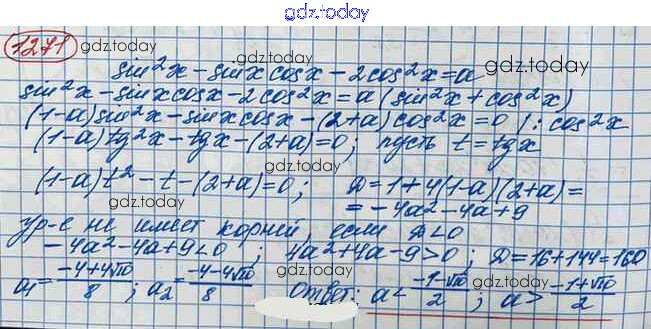 gdz.today
1271
gdz.today gdz.today
sin²x - sinx cosx - 2cos²x = a
sin²x - sinx cosx - 2cos²x = a(sin²x + cos²x)
(1-a)sin²x - sinx cosx - (2+a)cos²x = 0 /: cos²x
(1-a)tg²x - tgx - (2+a) = 0; пусть t = tgx
gdz.today gdz.today
(1-a)t² - t - (2+a) = 0; D = 1+4(1-a)(2+a) =
= -4a² - 4a + 9
ур-е не имеет корней, если D < 0
-4a² - 4a + 9 < 0; 4a² + 4a - 9 > 0; D = 16 + 144 = 160
gdz.today gdz.today
a₁ = (-4+4√10)/8; a₂ = (-4-4√10)/8 Ответ: a < (-1-√10)/2; a > (-1+√10)/2